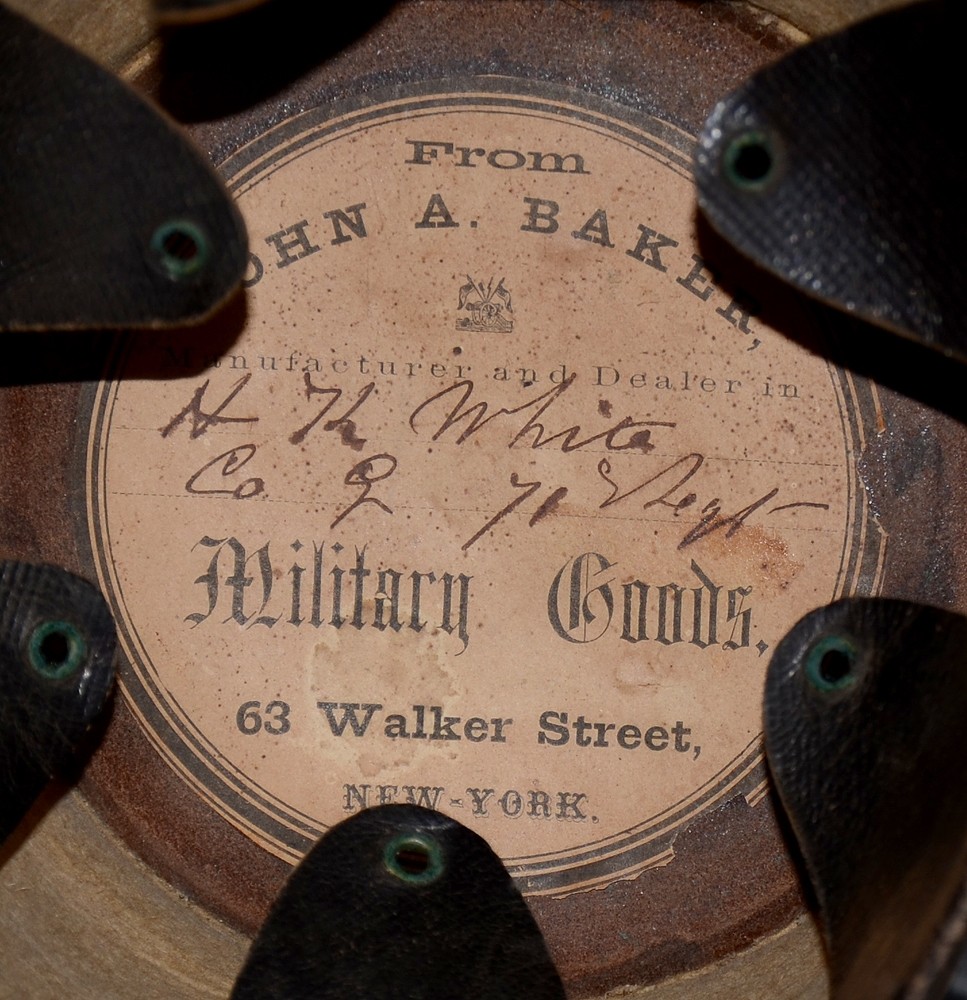 From
JOHN A. BAKER,
Manufacturer and Dealer in
H K White
Co G 71st Regt
Military Goods.
63 Walker Street,
NEW-YORK.